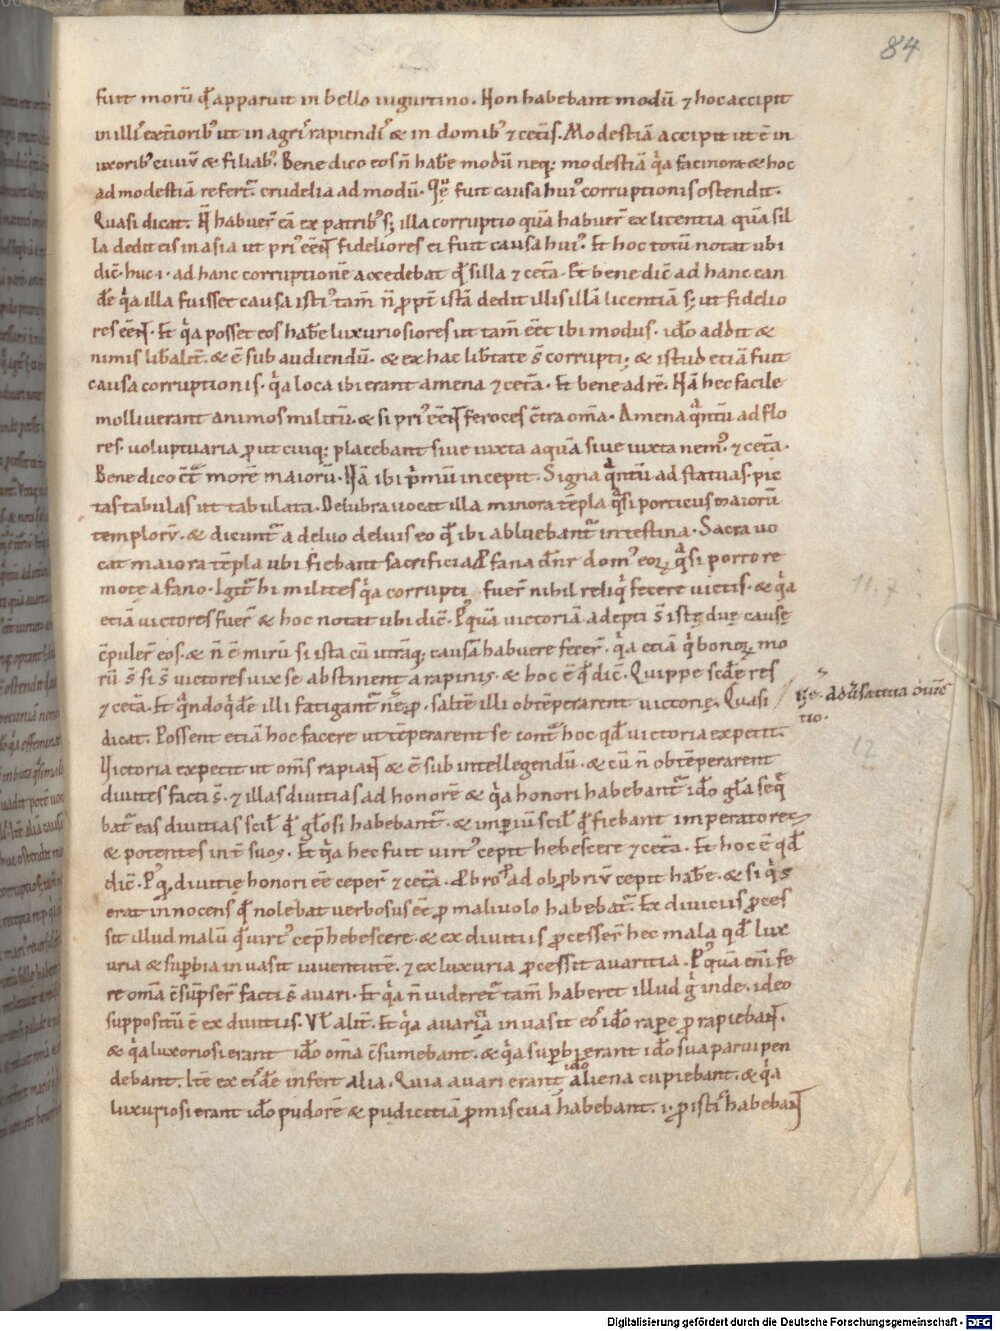 84
fuit morū q̄ apparuit in bello iugurtino. Non habebant modū ⁊ hoc accipit
in illis exteriorib; ut in agris rapiendis & in domib; ⁊ cet̄is. Modestiā accipit ut ē in
uxorib; ciuiū & filiab;. Bene dico eos n̄ hab̄e modū neq; modestiā q̇a facinora & hoc
ad modestiā refert̄ crudelia ad modū. Que fuit causa hui᾽ corruptionis ostendit.
Quasi dicat. N̄ habuer̄ eā ex patrib; s; illa corruptio quā habuer̄ ex licentia quā sil
la dedit eis in asia ut pri᾽ eēnt fideliores ei fuit causa hui᾽. Et hoc totū notat ubi
dic̄. huc .i. ad hanc corruptionē accedebat q̄ silla ⁊ cet̄a. Et bene dic̄ ad hanc ean
dē q̇a illa fuisset causa isti᾽ tam̄ n̄ ꝓpt̄ istā dedit illis silla licentiā s; ut fidelio
res eēnt. Et q̇a posset eos hab̄e luxuriosiores ut tam̄ eēt ibi modus. idō addit &
nimis lib̄alit̄. & ē sub audiendū. & ex hac lib̄tate s̄ corrupti; & istud etiā fuit
causa corruptionis. q̇a loca ibi erant amena ⁊ cet̄a. Et bene ad rē. Nā hec facile
molliuerant animos militū. & si pri᾽ eēnt feroces c̄tra om̄a. Amena q̇ntū ad flo
res. uoluptuaria ꝓut cuiq; placebant siue iuxta aquā siue iuxta nem᾽ ⁊ cet̄a.
Bene dico c̄t̄ morē maiorū. Nā ibi ṗmū incepit. Signa q̇ntū ad statuas. pic
tas tabulas ut tabulata. Delubra uocat illa minora tēpla q̇si porticus maiorū
templorū. & dicunt̄ a deluo deluis eo q̄ ibi abluebant̄ intestina. Sacra uo
cat maiora tēpla ubi fiebant sacrificia. Profana dn̄r dom᾽ eoꝝ q̇si porro re
mote a fano. Igit̄ hi milites q̇a corrupti fuer̄ nihil reliq̇ fecere uictis. & q̇a
etiā uictores fuer̄ & hoc notat ubi dic̄. Pq̄uā uictoriā adepti s̄ iste due cause
c̄puler̄ eos. & n̄ ē mirū si ista cū utraq; causā habuere fecer̄. q̇a etiā q̇ bonoꝝ mo
rū s̄ si s̄ uictores uix se abstinent a rapinis. & hoc ē q̄ dic̄. Quippe scd̄e res
⁊ cet̄a. Et q̇ndoq̇dē illi fatigant̄ saltē illi obtēperarent uictorie. Quasi
ne. aduersatiua
dicat. Possent etiā hoc facere ut tēperarent se cont̄ hoc qd̄ uictoria expetit.
Victoria expetit ut om̄s rapiant & ē sub intellegendū. & cū n̄ obtēperarent
diuites facti s̄. ⁊ illas diuitias ad honorē & q̇a honori habebant̄ idō gl̄a seq̄
bat̄ eas diuitias scil̄ q̄ gl̄osi habebant̄. & imperiū scil̄ q̄ fiebant imperatores
& potentes int̄ suos. Et q̇a hec fuit uirt᾽ cepit hebescere ⁊ cet̄a. Et hoc ē qd̄
dic̄. Pq̄ diuitie honori eē ceper̄ ⁊ cet̄a. Probro .i. ad obprobriū cepit hab̄e. & si q̇s
erat innocens q̄ nolebat uerbosus eē ꝓ maliuolo habebat̄. Ex diuiciis ꝓces
sit illud malū q̄ uirt᾽ cep̄ hebescere. & ex diuitiis ꝓcesser̄ hec mala qd̄ lux
uria & sup̄bia inuasit iuuentutē. ⁊ ex luxuria ꝓcessit auaritia. Pq̄uā enī fe
re om̄a c̄sūpser̄ facti s̄ auari. Et q̇a n̄ uideret̄ tam̄ haberet illud ḡ inde. ideo
suppositū ē ex diuitiis. Vl̄ alit̄. Et q̇a auaritia inuasit eos idō rapere ꝓ rapiebant.
& q̇a luxoriosi erant idō om̄a c̄sumebant. & q̇a sup̄bi erant idō sua parui pen
debant. Itē ex eisdē infert alia. Quia auari erant idō aliena cupiebant. & q̇a
luxuriosi erant idō pudorē & pudicitiā ꝓmiscua habebant. .i. ꝓ istis habebant
Digitalisierung gefördert durch die Deutsche Forschungsgemeinschaft - DFG